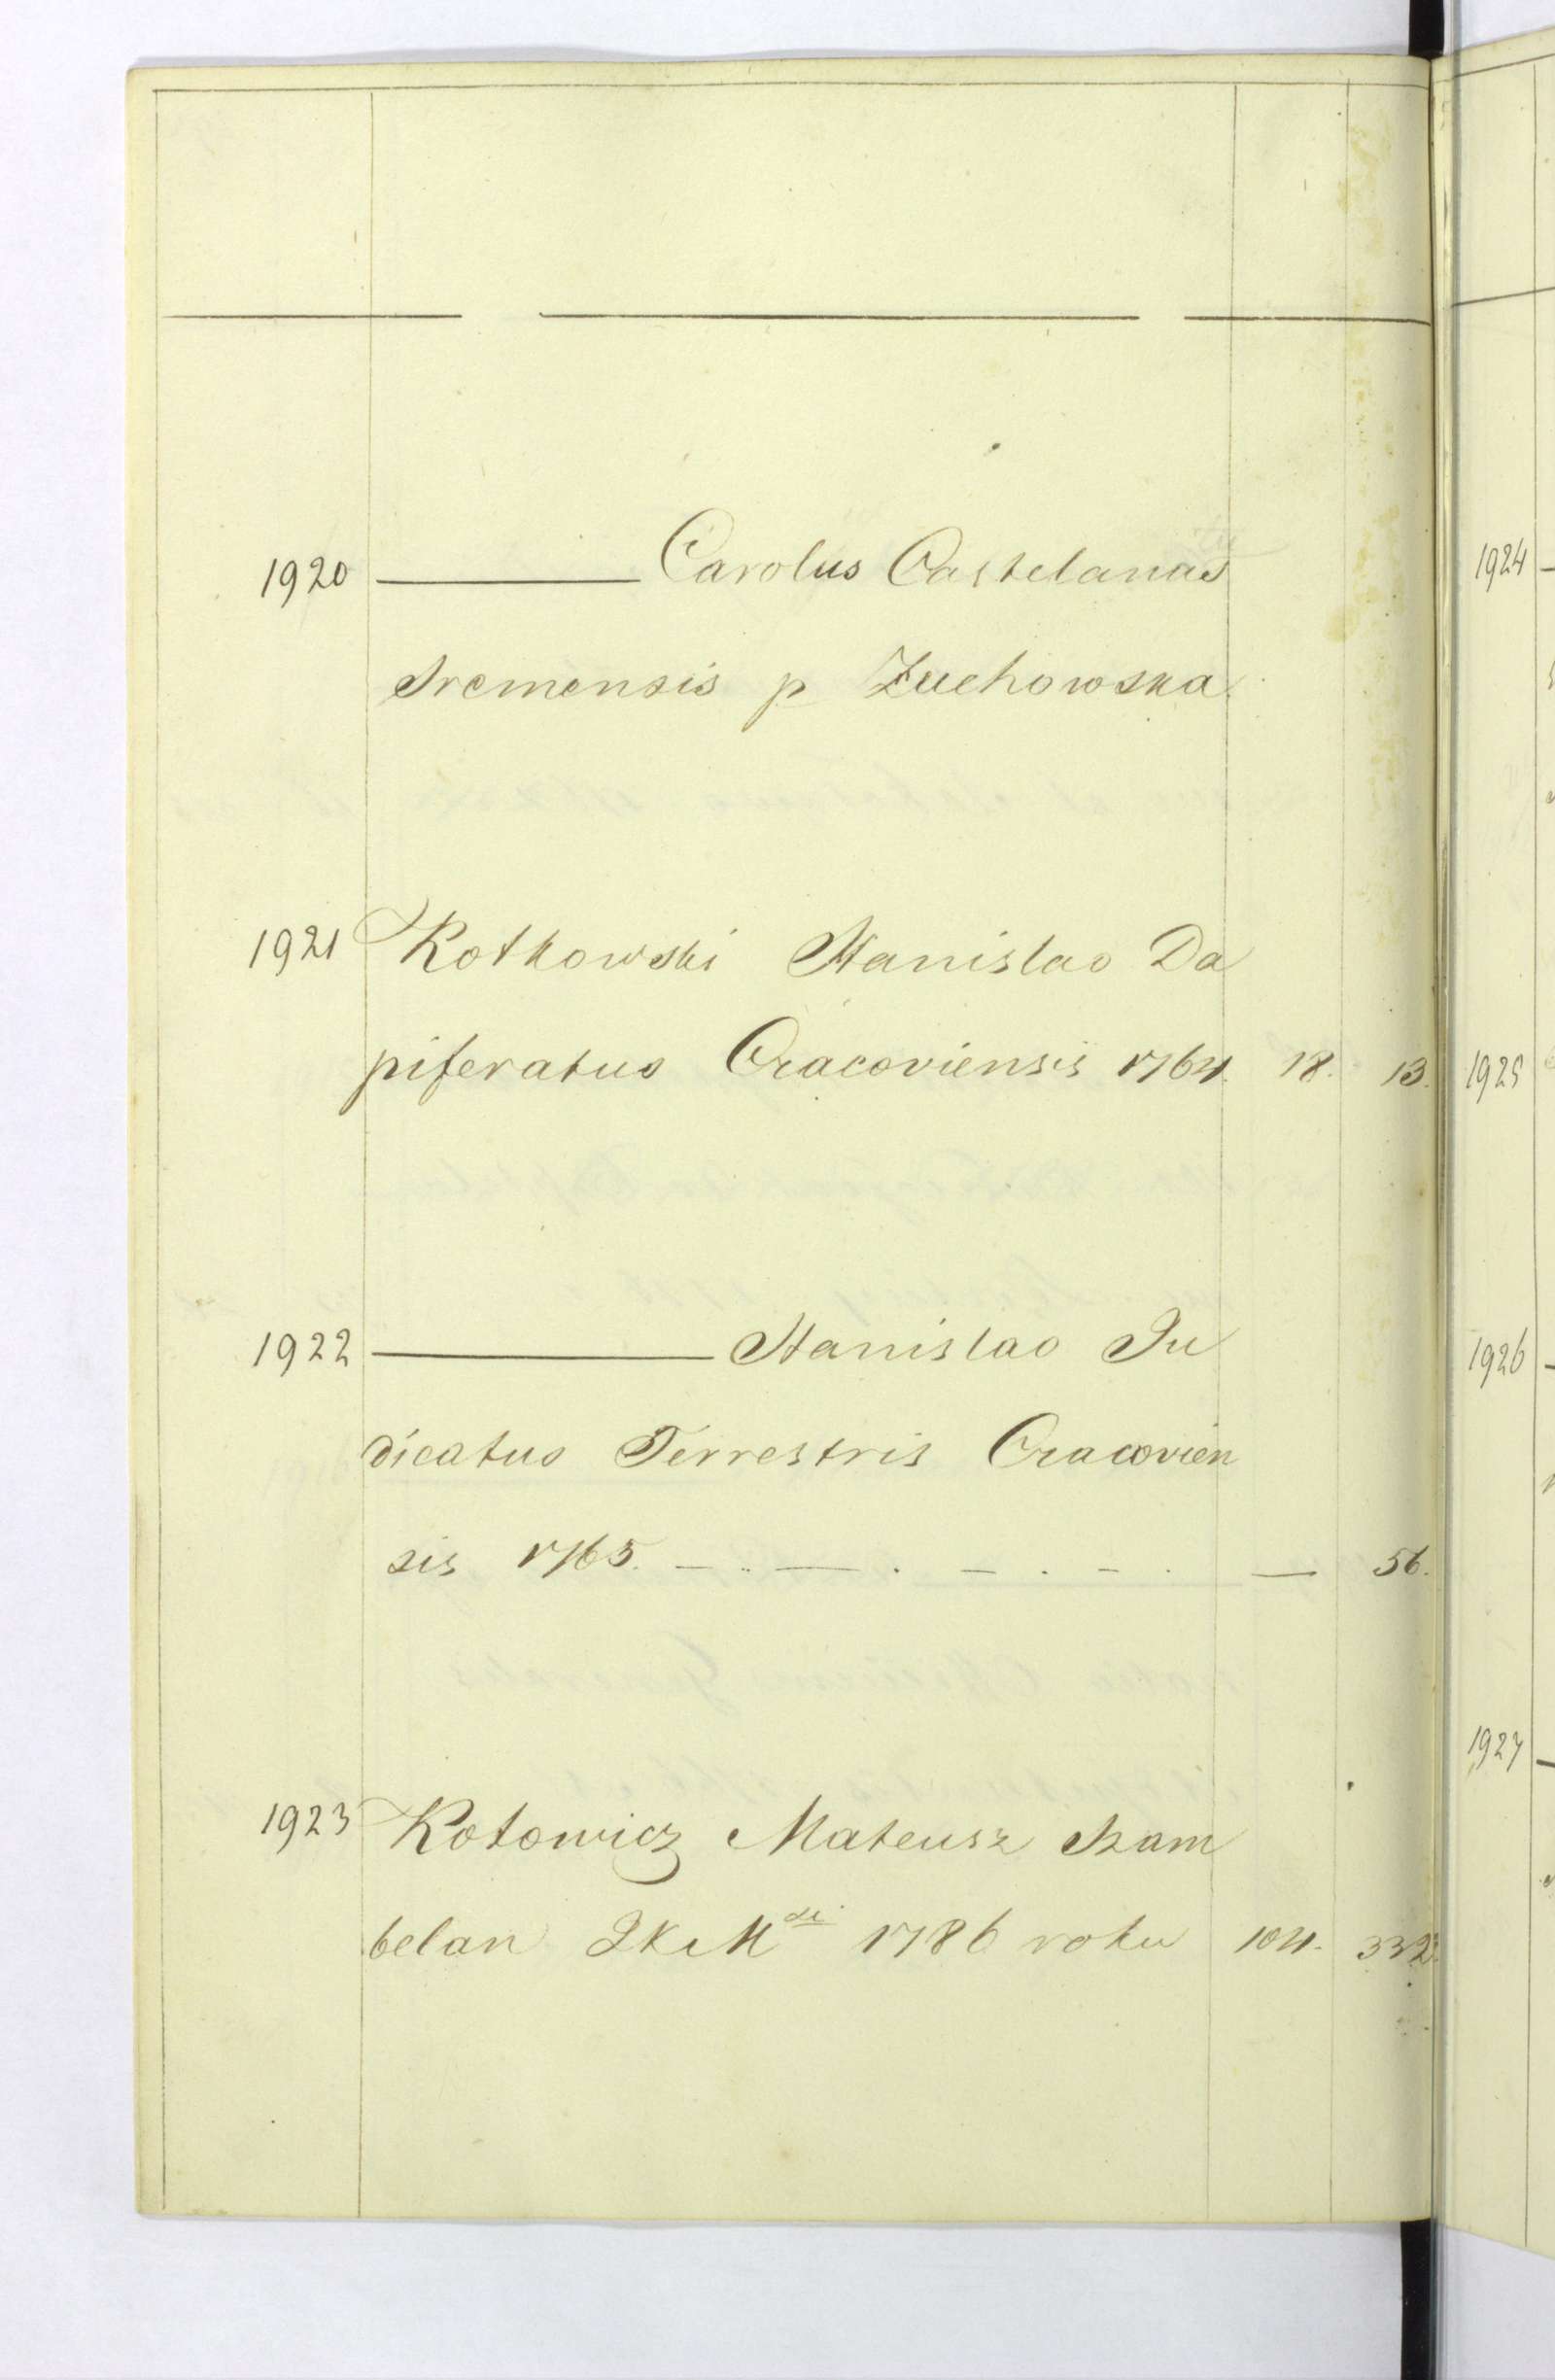 1920 ——— Carolus Castelanat
Sremensis p Zuchowska
1921 Kotkowski Stanislao Da
piferatus Cracoviensis 1764. 18. 13.
1922 ——— Stanislao Ju
dicatus Terrestris Cracovien
sis 1765. — .. — . — . — . — 56.
1923 Kotowicz Mateusz Szam
belan JKM 1786 roku 104. 332.
1924
1925
1926
1927